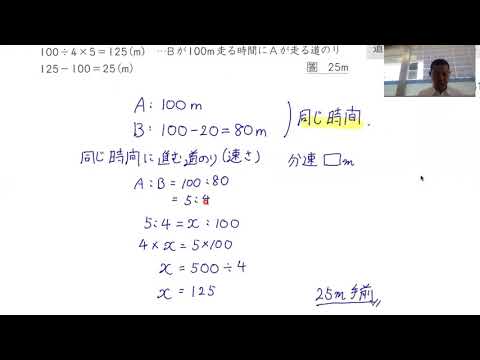 100÷4×5=125(m) …Bが100m走る時間にAが走る道のり
125−100=25(m) 答 25m
道
A：100m
B：100−20=80m
同じ時間．
同じ時間に進む道のり(速さ)
分速□m
A：B=100：80
=5：4
5：4=x：100
4×x=5×100
x=500÷4
x=125
25m手前